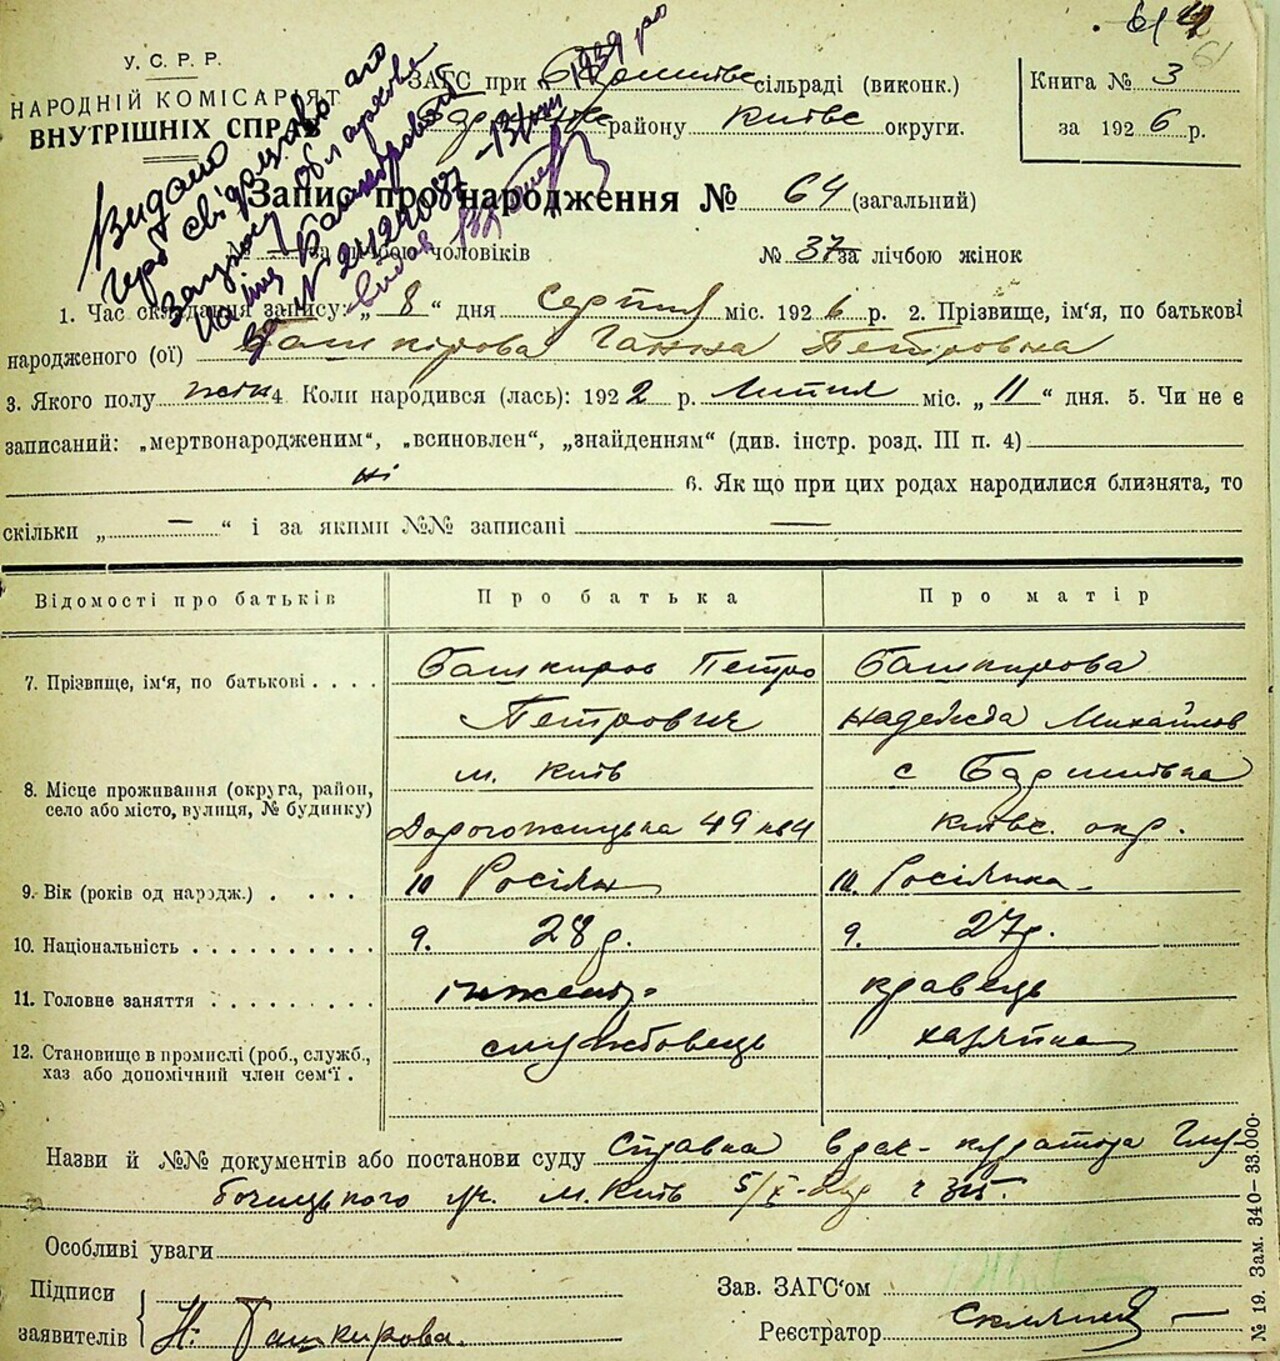 61
У. С. Р. Р.
НАРОДНІЙ КОМІСАРІЯТ
ВНУТРІШНІХ СПРАВ
ЗАГС при сільраді (виконк.)
району Київс округи.
Книга № 3
за 1926 р.
Видано
герб свідоцтво
на ім'я Башкірової
Запис про народження № 64 (загальний)
№ — за лічбою чоловіків № 37 за лічбою жінок
1. Час складання запису: „ 8 “ дня Серпня міс. 1926 р. 2. Прізвище, ім'я, по батькові
народженого (ої) Башкірова Ганна Петровна
3. Якого полу жін 4 Коли народився (лась): 1922 р. Липня міс. „ 11 “ дня. 5. Чи не є
записаний: „мертвонародженим“, „всиновлен“, „знайденням“ (див. інстр. розд. III п. 4)
ні 6. Як що при цих родах народилися близнята, то
скільки „ — “ і за якими №№ записані —
Відомості про батьків Про батька Про матір
7. Прізвище, ім'я, по батькові . . . . Башкиров Петро Башкирова
Петрович Надежда Михайлов
8. Місце проживання (округа, район, село або місто, вулиця, № будинку) м. Київ с Баришівка
Дорогожицька 49 кв 4 Київс. окр.
9. Вік (років од народж.) . . . . 10 Росіян 10. Росіянка
10. Національність . . . . . . . . . . 9. 28 р. 9. 27 р.
11. Головне заняття . . . . . . . . інженір кравець
12. Становище в промислі (роб., служб., хаз або допомічний член сем'ї . службовець хазяйка
Назви й №№ документів або постанови суду Справка врач-куратора Глу-
бочицького м. Київ 5/X
Особливі уваги
Підписи
заявителів Н. Башкирова.
Зав. ЗАГС'ом
Реєстратор
№ 19. Зам. 340—33.000.